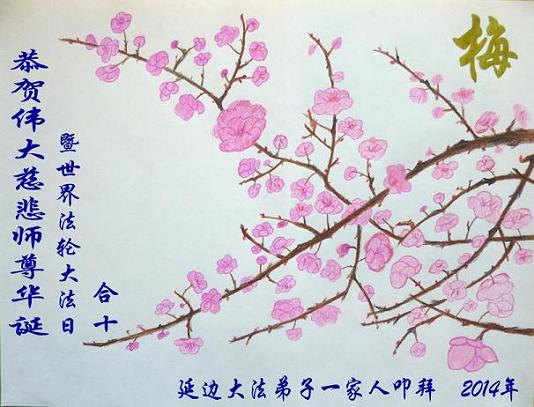 梅
恭贺伟大慈悲师尊华诞
暨世界法轮大法日
合十
延边大法弟子一家人叩拜 2014年